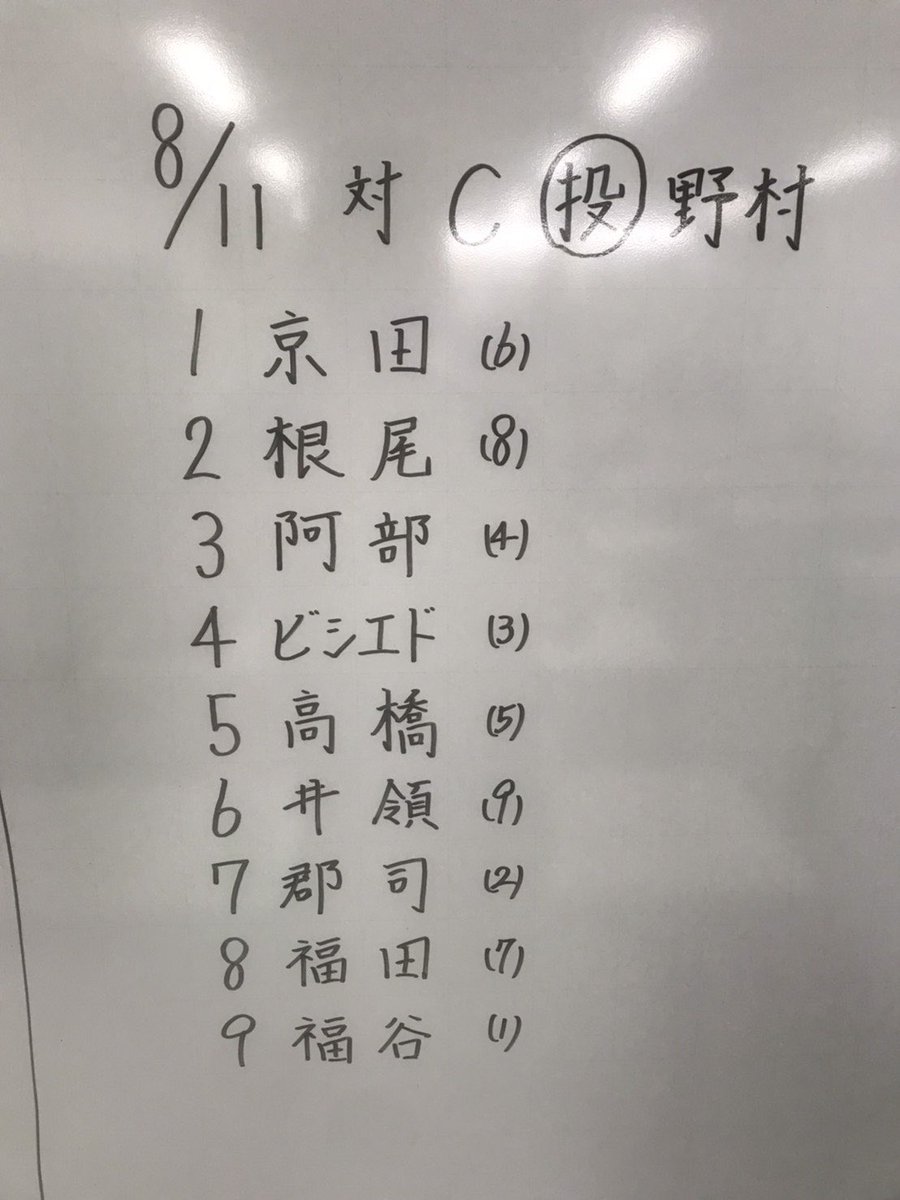 8/11 対 C 投 野村
1 京田 (6)
2 根尾 (8)
3 阿部 (4)
4 ビシエド (3)
5 高橋 (5)
6 井領 (9)
7 郡司 (2)
8 福田 (7)
9 福谷 (1)